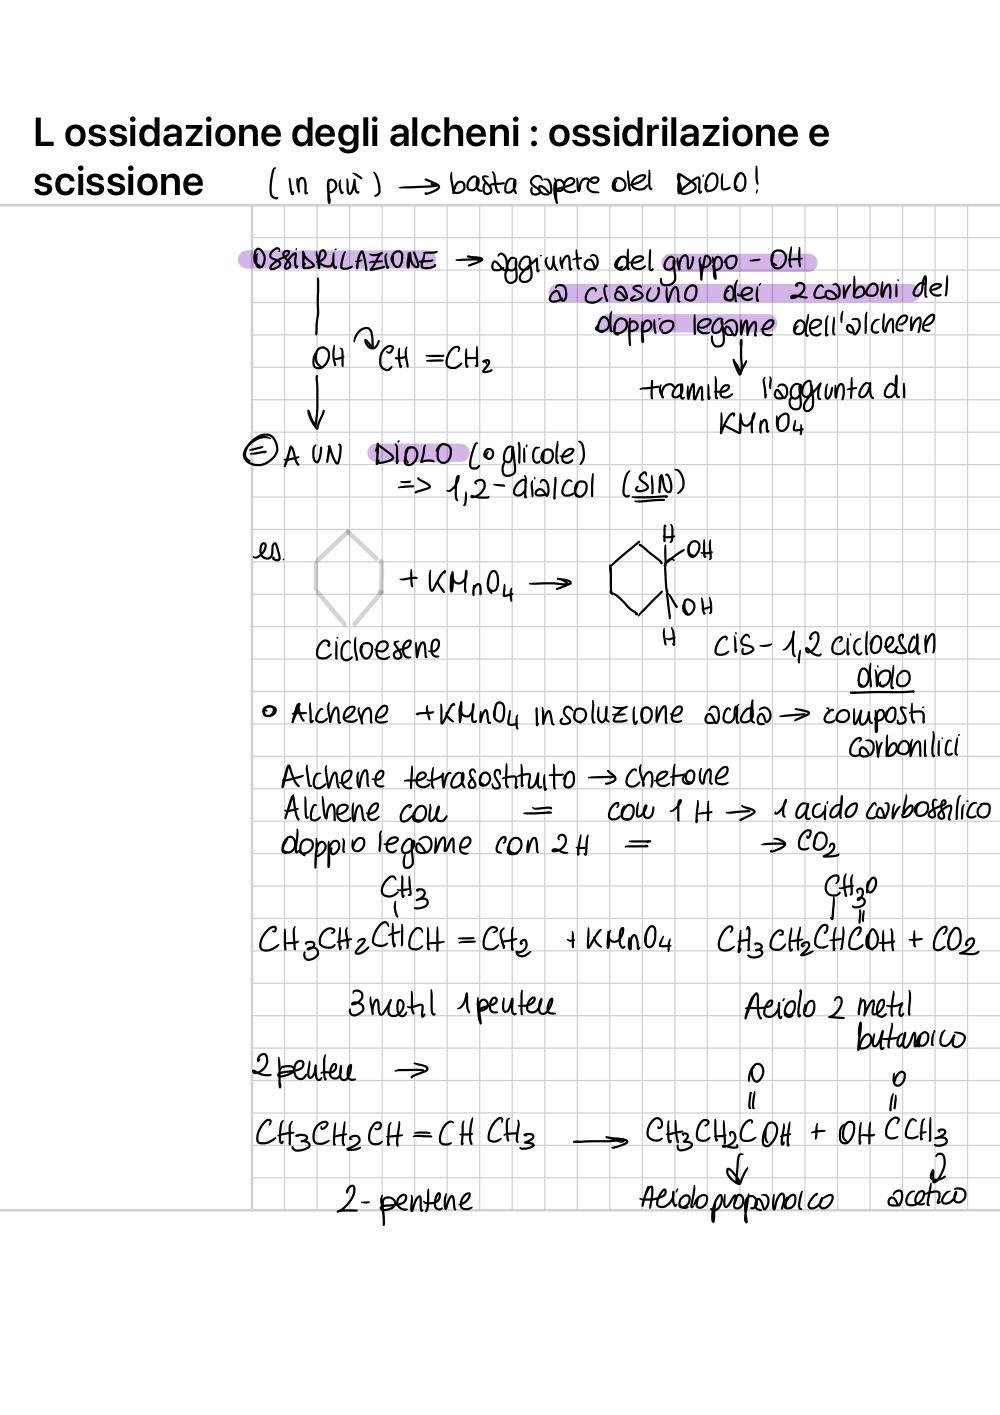 L ossidazione degli alcheni : ossidrilazione e
scissione (in più) → basta sapere del DIOLO!
OSSIDRILAZIONE → aggiunta del gruppo - OH
a ciasuno dei 2 carboni del
doppio legame dell'alchene
OH CH =CH₂
tramite l'aggiunta di
KMnO₄
= A UN DIOLO (o glicole)
=> 1,2-dialcol (SIN)
es. + KMnO₄ →
H
OH
OH
H
cicloesene
cis- 1,2 cicloesan
diolo
• Alchene +KMnO₄ in soluzione acida → composti
carbonilici
Alchene tetrasostituito → chetone
Alchene con = con 1 H → 1 acido carbossilico
doppio legame con 2H = → CO₂
CH₃ CH₃O
CH₃CH₂CHCH =CH₂ +KMnO₄ CH₃CH₂CHCOH + CO₂
3metil 1penten Acido 2 metil
butanoico
2penten →
O O
CH₃CH₂CH =CH CH₃ → CH₃CH₂COH + OH CCH₃
2- pentene Acido propanoico acetico